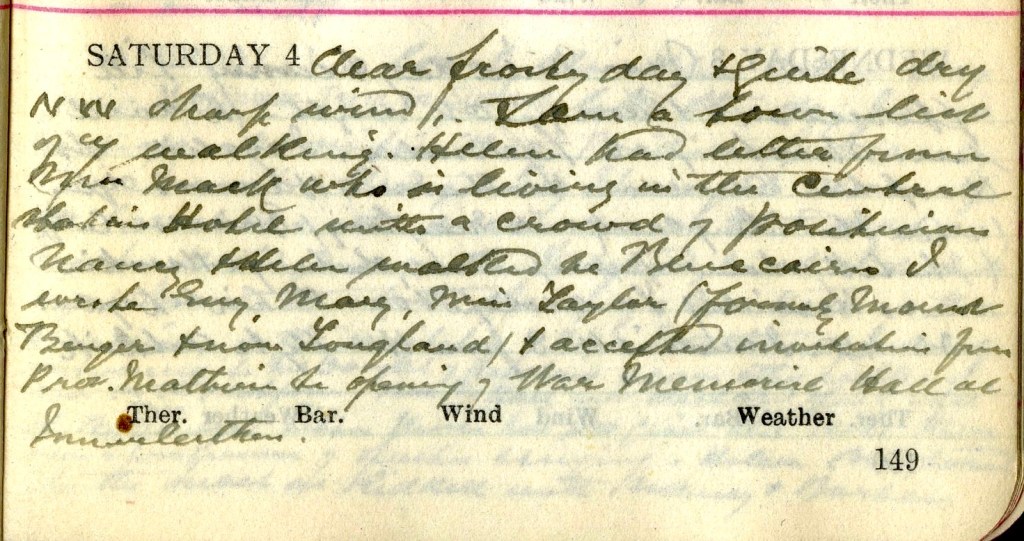 SATURDAY 4 Clear frosty day & quite dry
N W sharp wind. I am a town
of walking. Helen had letter from
Mack who is living in the Central
Station Hotel with a crowd of politicians
Nancy & Helen walked to I
wrote Guy, Mary, Miss Taylor (formerly Mount
Benger & now Longland) & accepted invitation from
Prov. Mathieson to opening of War Memorial Hall at
Ther. Bar. Wind Weather
Innerleithen.
149